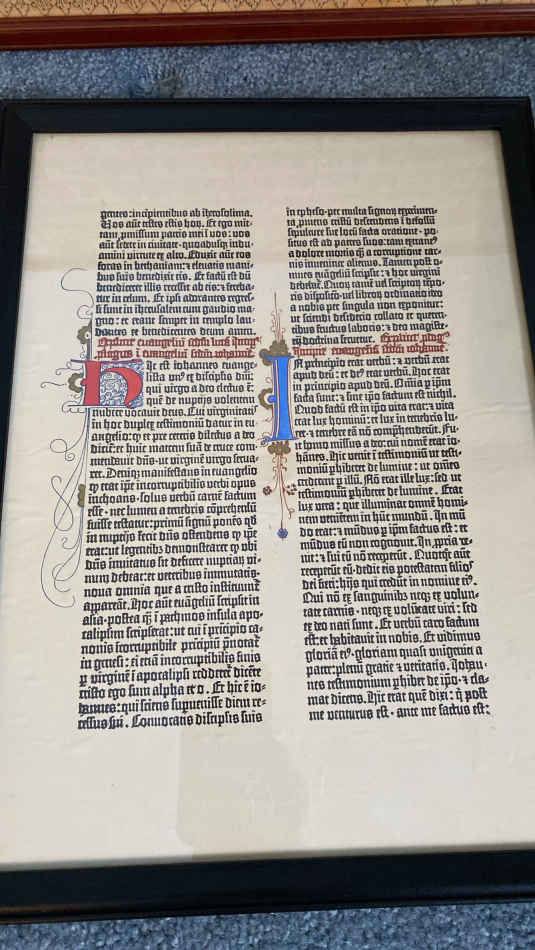 gentes: incipientibus ab iherosolima.
Vos aut̄ testes estis hoȝ. Et ego mit-
tam promissum patris mei ī vos: vos
aut̄ sedete in civitate quoadusq̨ indu-
amini virtute ex alto. Eduxit aūt eos
foras in bethaniam: et elevatis mani-
bus suis benedixit eis. Et factū est dū
benediceret illis recessit ab eis: et fereba-
tur in celum. Et ipsi adorantes regres-
si sunt in iherusalem cum gaudio ma-
gno: et erant semper in templo lau-
dantes et benedicentes deum amen.
Explicit euangeliū scdm lucā Incipit
plogus ī euangeliū scdm iohannē.
Hic est iohannes euange-
lista unꝰ ex discipulis dnī:
qui virgo a deo electus ē:
quē de nuptijs volentem
nubere vocavit deus. Cui virginitatis
in hoc duplex testimoniū datur in eu-
angelio: q et pre ceteris dilectus a deo
dicit: et huic matrem suā de cruce com-
mendavit dns: ut virginē virgo serua-
ret. Deniq̨ manifestans in euangelio
q erat ipse incorruptibilis verbi opus
inchoans. solus verbū carnē factum
esse. nec lumen a tenebris cōprehensū
fuisse testatur: primū signū ponēs qd
in nuptijs fecit dns ostendens q ipe
erat: ut legentibȝ demonstraret q ubi
dns invitatus sit deficere nuptiaȝ vi-
num debeat: et veteribus immutatis.
noua omnia que a cristo instituunt
appareāt. Hoc aut euāgeliū scripsit in
asia. postea q̄ ī pathmos insula apo-
calipsim scripserat: ut cui ī prīcipio ca-
nonis incorruptibile prīcipiū pnotat
in genesi: ei etiā incorruptibilis finis
p virginē ī apocalipsi redderet dicēte
cristo ego sum alpha et o. Et hic ē io-
hannes: qui sciens supuenisse diem re-
cessus sui. Convocatis discipulis suis
in epheso. per multa signoȝ experimen-
ta pmens cristū descendens ī defossū
sepulture sue locū facta oratione. po-
situs est ad patres suos: tam extraneꝰ
a dolore mortis q̄ a corruptione car-
nis invenitur alienus. Tamen post o-
mnes euāgeliū scripsit: et hoc virgini
debebat. Quoȝ tamē vel scriptoȝ tēpo-
ris dispositio. vel libroȝ ordinatio ideo
a nobis per singula non exponitur:
ut sciendi desiderio collato et queren-
tibus fructus laboris: et deo magiste-
rij doctrina servetur. Explicit plogꝰ
Incipit euangelium scdm iohannē.
In principio erat verbū: et verbū erat
apud deū: et deꝰ erat verbū. Hoc erat
in principio apud deū. Omīa p ipm
facta sunt: et sine ipō factum est nichil.
Quod factū est in ipō vita erat: et vita
erat lux hominū: et lux in tenebris lu-
cet. et tenebre eā nō comprehenderūt. Fu-
it homo missus a deo: cui nomē erat io-
hannes. Hic venit ī testimoniū ut testi-
moniū phiberet de lumine: ut omnes
crederent p illū. Nō erat ille lux: sed ut
testimoniū phiberet de lumine. Erat
lux vera: que illuminat omnē homi-
nem venientem in hūc mundū. In mū-
do erat: et mūdus p ipm factus est: et
mūdus eū non cognovit. In ppria ve-
nit: et sui eū nō receperūt. Quotqt̄ aūt
receperūt eū. dedit eis potestatem filioȝ
dei fieri: hijs qui credūt in nomine eiꝰ.
Qui nō ex sanguinibȝ neq̨ ex volun-
tate carnis. neq̨ ex volūtate viri: sed
ex deo nati sunt. Et verbū caro factum
est: et habitavit in nobis. Et vidimus
gloriā eiꝰ. gloriam quasi unigeniti a
patre: plenū gratie et veritatis. Iohan-
nes testimonium phibet de ipō. et cla-
mat dicens. Hic erat quē dixi: q̄ post
me venturus est. ante me factus est: